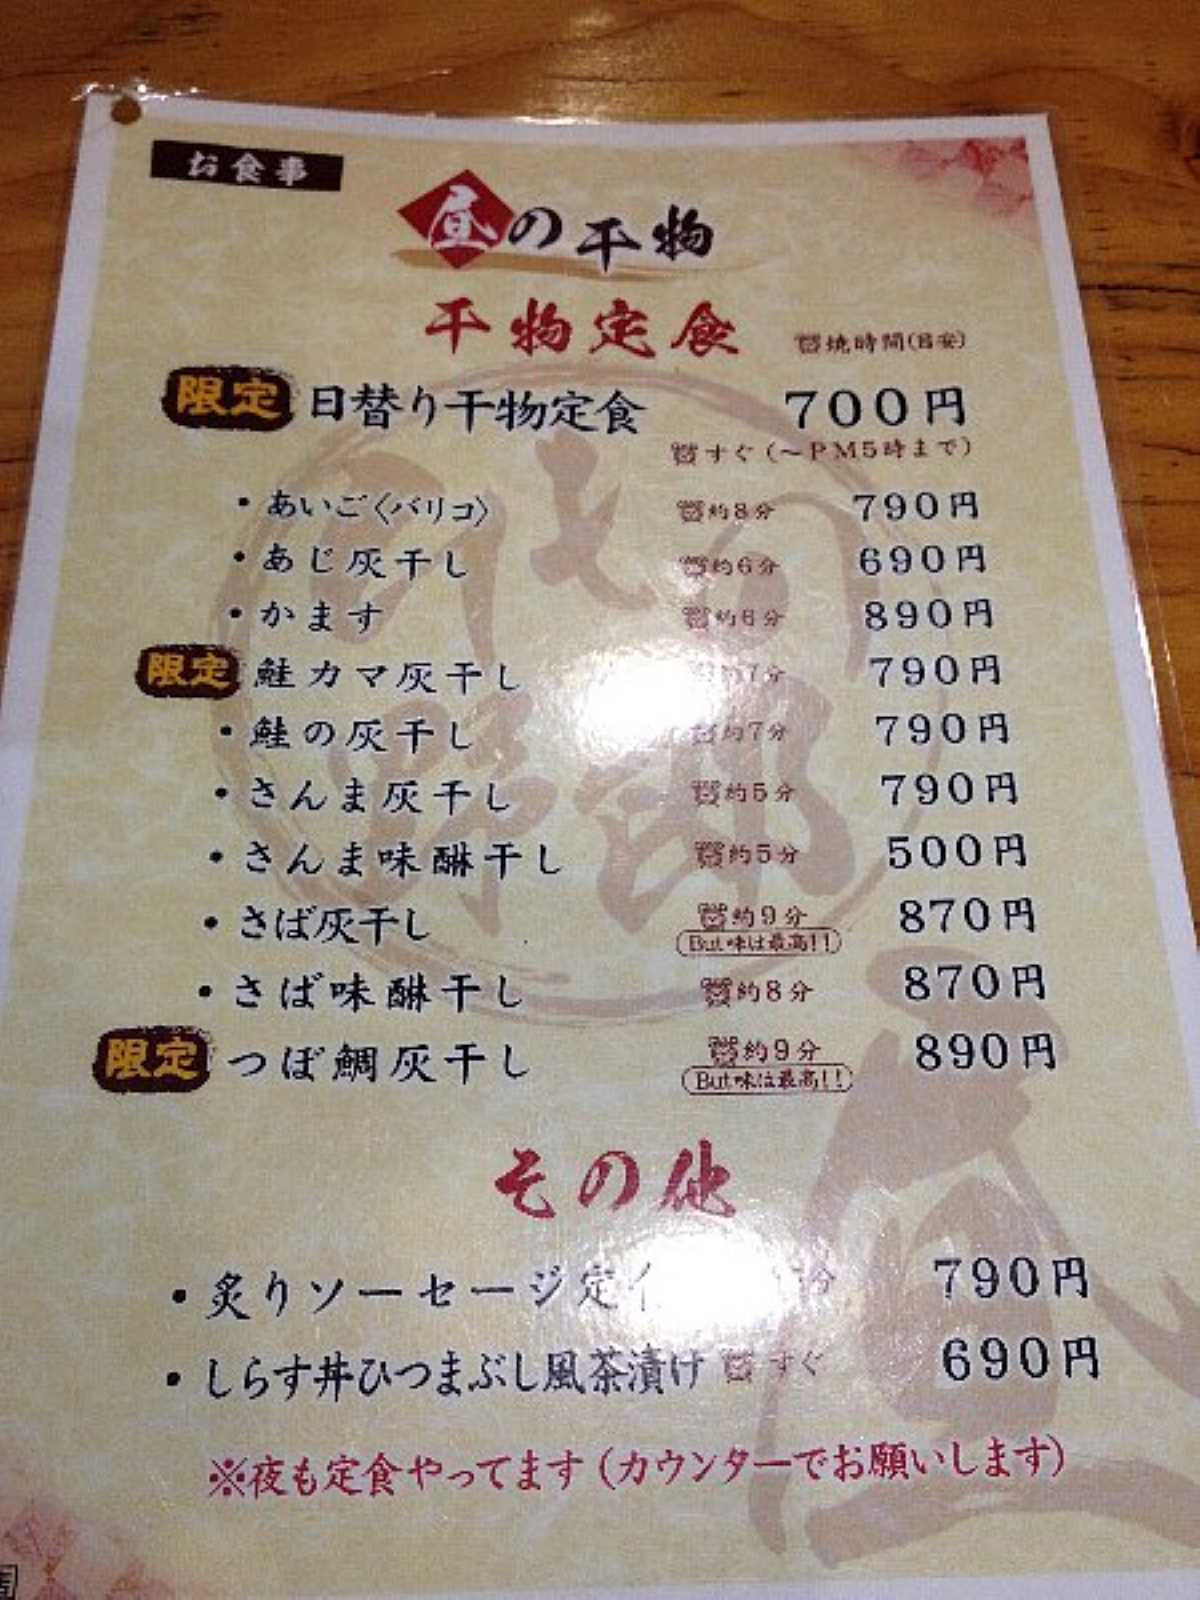 お食事
昼の干物
干物定食 焼時間(目安)
限定 日替り干物定食 700円
すぐ(〜PM5時まで)
・あいご〈バリコ〉 約8分 790円
・あじ灰干し 約6分 690円
・かます 約6分 890円
限定 鮭カマ灰干し 約7分 790円
・鮭の灰干し 約7分 790円
・さんま灰干し 約5分 790円
・さんま味醂干し 約5分 500円
・さば灰干し 約9分 870円
But味は最高!!
・さば味醂干し 約8分 870円
限定 つぼ鯛灰干し 約9分 890円
But味は最高!!
その他
・炙りソーセージ定 分 790円
・しらす丼ひつまぶし風茶漬け すぐ 690円
※夜も定食やってます(カウンターでお願いします)